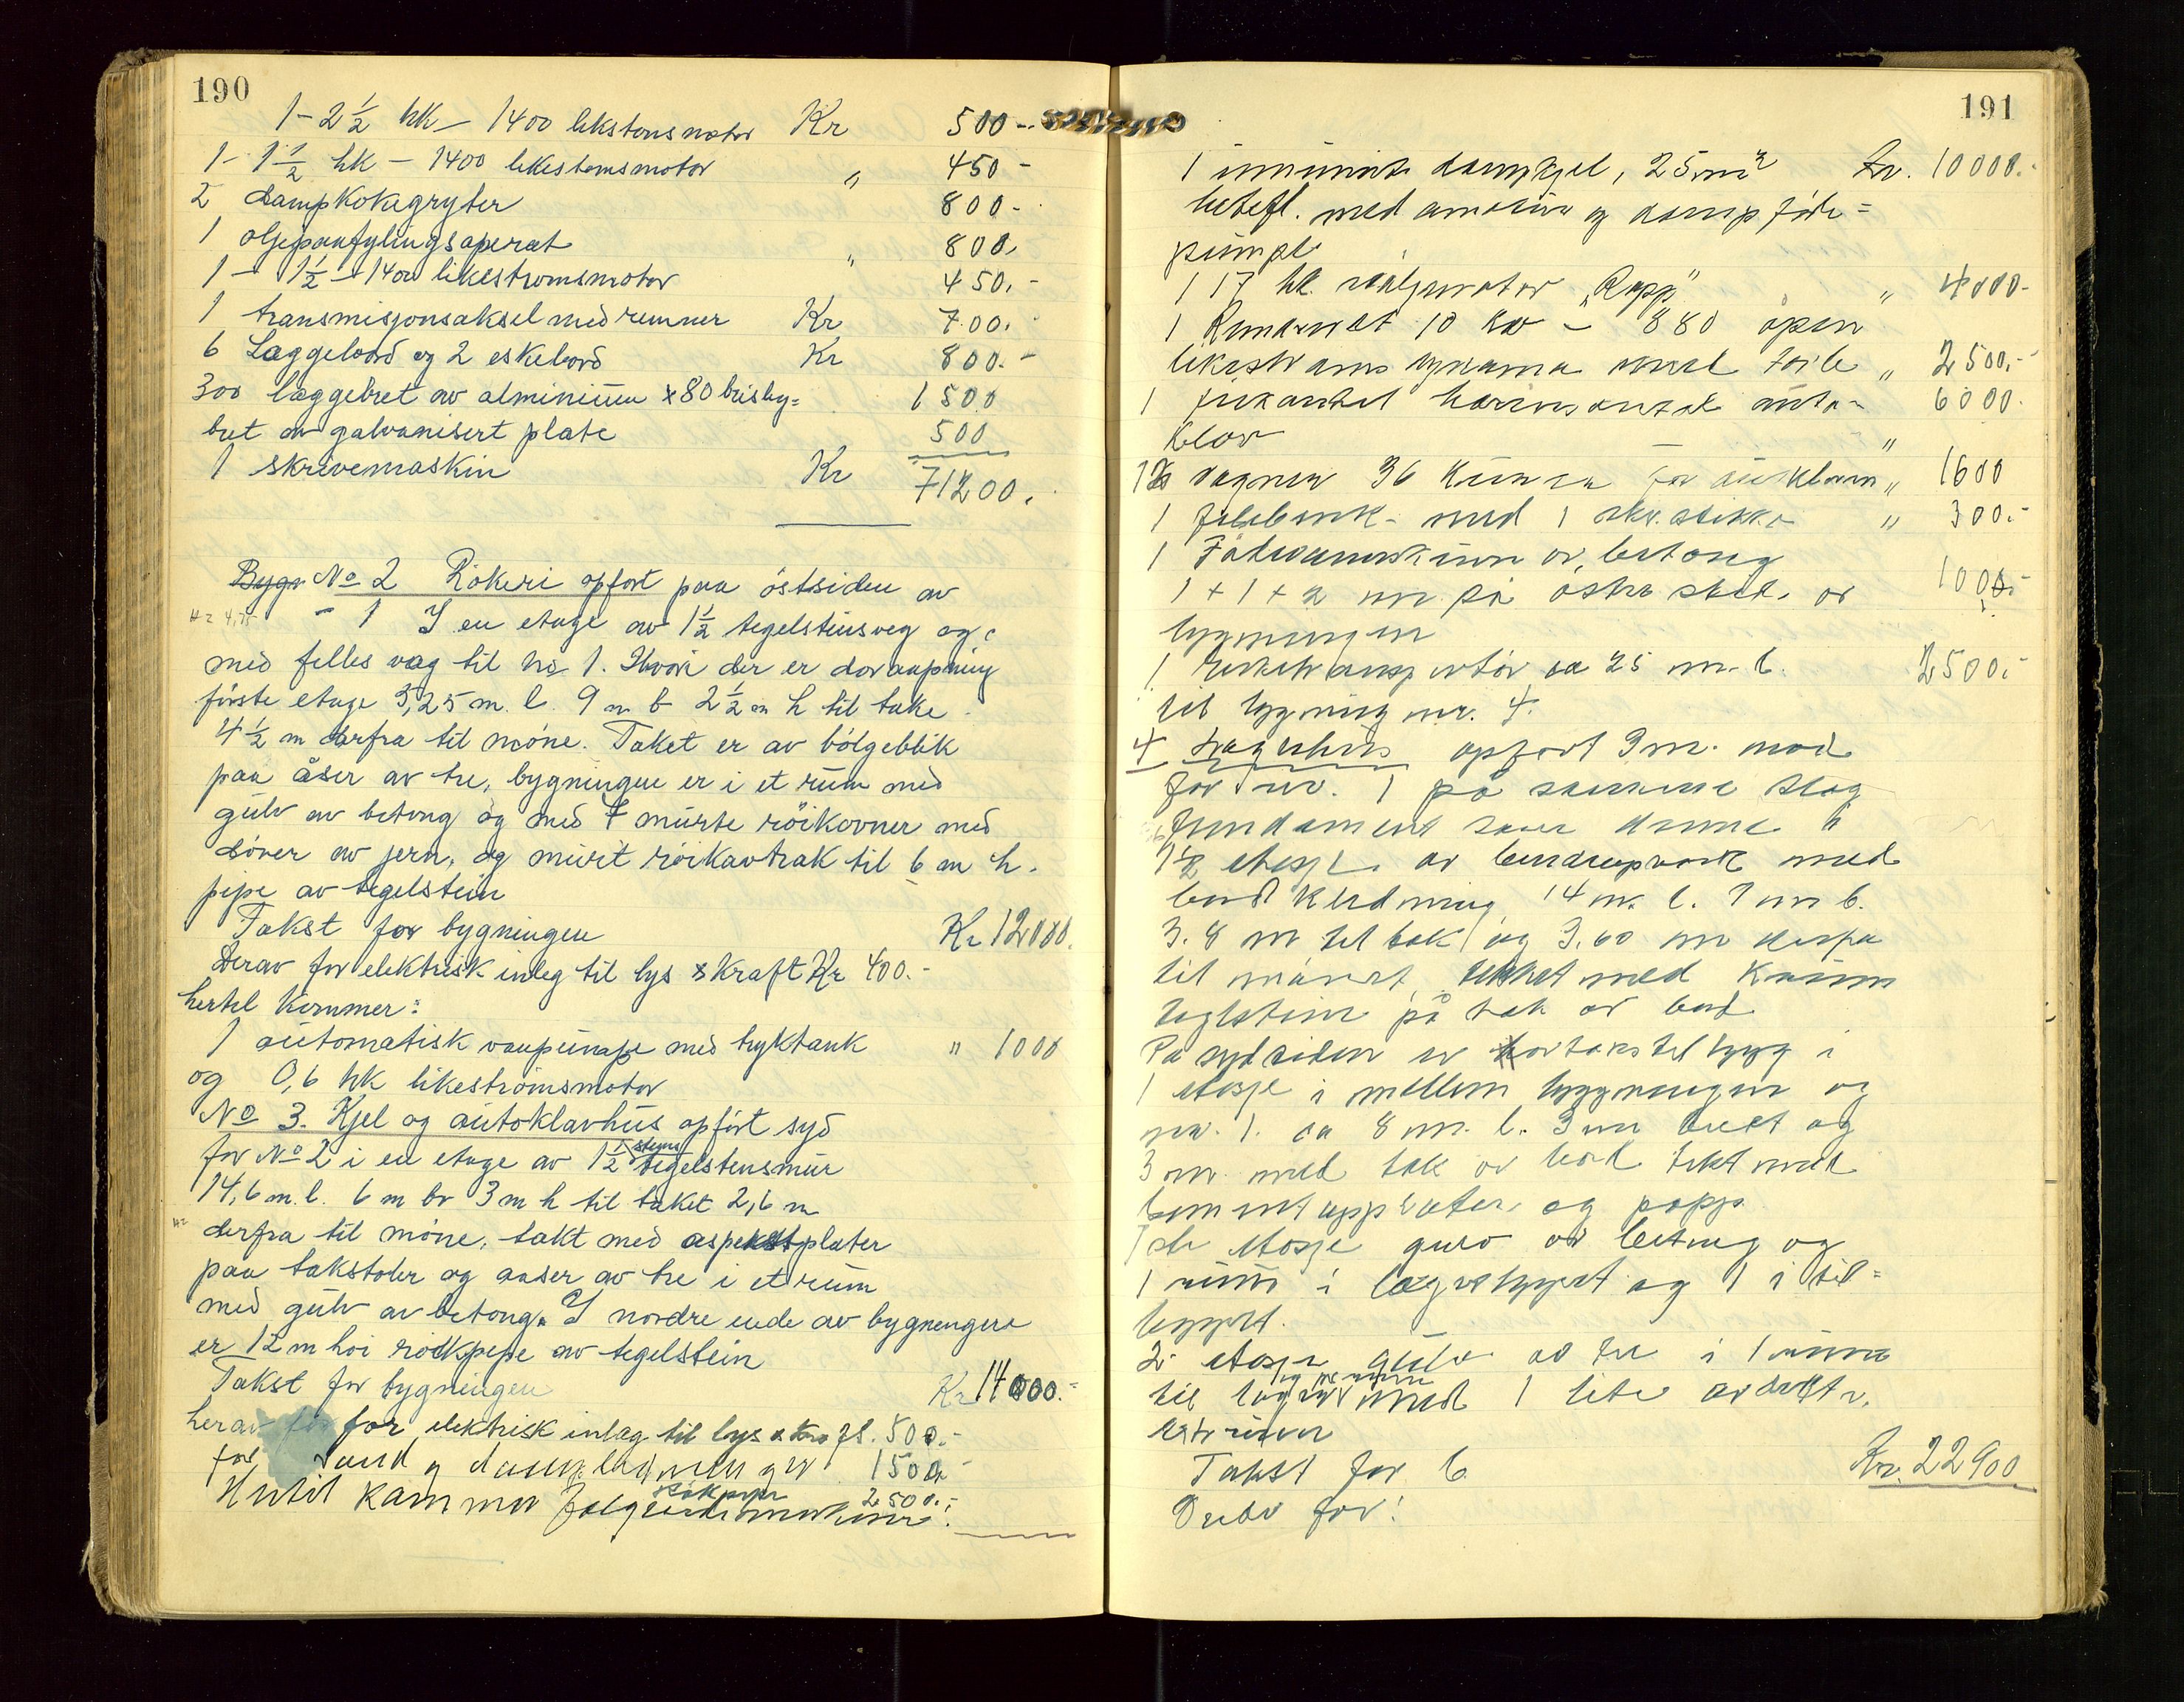 190
1 - 2 1/2 hk - 1400 lekstomsmotor Kr 500 -
1 - 1 1/2 hk - 1400 likestomsmotor " 450 -
2 Dampkokegryter 800 -
1 oljepaafylingsaperat " 800,
1 - 1 1/2 - 1400 likestromsmotor 450. -
1 transmisjonsaksel med remmer Kr 700.
6 Læggebord og 2 eskebord Kr 800. -
300 læggebret av alminium & 80 brisling=
bret av galvanisert plate 1500
500
1 skrivemaskin Kr 71200.
Bygn No 2 Rökeri opfört paa östsiden av
- 1 I en etage av 1 1/2 tegelstensveg og
med felles væg til no 1. Hvor der er doraapning
förste etage 3,25 m. l. 9 m b 2 1/2 m h til take
4 1/2 m derfra til möne. Taket er av bölgeblik
paa åser av tre, bygningen er i et rum med
gulv av betong og med 7 murte röikovner med
dörer av jern, og murt röikavtrak til 6 m h.
pipe av tegelstein
Takst for bygningen Kr 12000.
Derav for elektrisk inleg til lys & kraft Kr 400. -
hertel kommer:
1 automatisk vanpumpe med tryktank " 1000
og 0,6 hk likeströmsmotor
No 3. Kjel og autoklavhus opfört syd
for No 2 i en etage av 1 1/2 stens tegelstensmur
14,6 m. l. 6 m br 3 m h til taket 2,6 m
derfra til möne, takt med plater
paa takstoler og aaser av tre i et rum
med gulv av betong. I nordre ende av bygningen
er 12 m hoi röikpipe av tegelstein
Takst for bygningen Kr 14000. -
herav for elektrisk inlæg til lys & 500. -
for 1500 -
Röikpipe 2500. -
Hertil kommer følgende maskiner:
191
1 dampkjel, 25 m2 Kr. 10000. -
med armatur og dampföde=
pumpe
1 17 hk. råoljemotor "Rapp" " 4000 -
1 10 kw - 880 åpen
likestrøms dynamo med " 2500. -
1 firkantet horisontal auto- 6000.
klav "
12 vogner 36 for autoklaven " 1600
1 filebenk med 1 skr.stikke " 300. -
1 Fødevannskum av betong
1 + 1 + 2 m på østre side av 1000. -
bygningen
1 ca 25 m. l. 2500. -
til bygning nr. 4.
4 Lagerhus opført 9 m. nord
for nr. 1 på samme slag
fundament som denne i
1 1/2 etasje. av bindingsverk med
bordkledning 14 m. l. 7 m b.
3.8 m til tak og 3.60 m derfra
til mønet, tekket med Krum
teglstein på tak av bord
På sydsiden er tilbygg i
1 etasje i mellem bygningen og
nr. 1. ca 8 m. l. 3 m bredt og
3 m. med tak av bord tekt med
sementapplater og papp
1ste etasje gulv av betong og
1 rum i lagerbygget og 1 i til=
bygget.
2. etasje gulv av tre i 1 rum
til lager med 1 lite avdelt
Takst for b. Kr. 22900
Derav for: